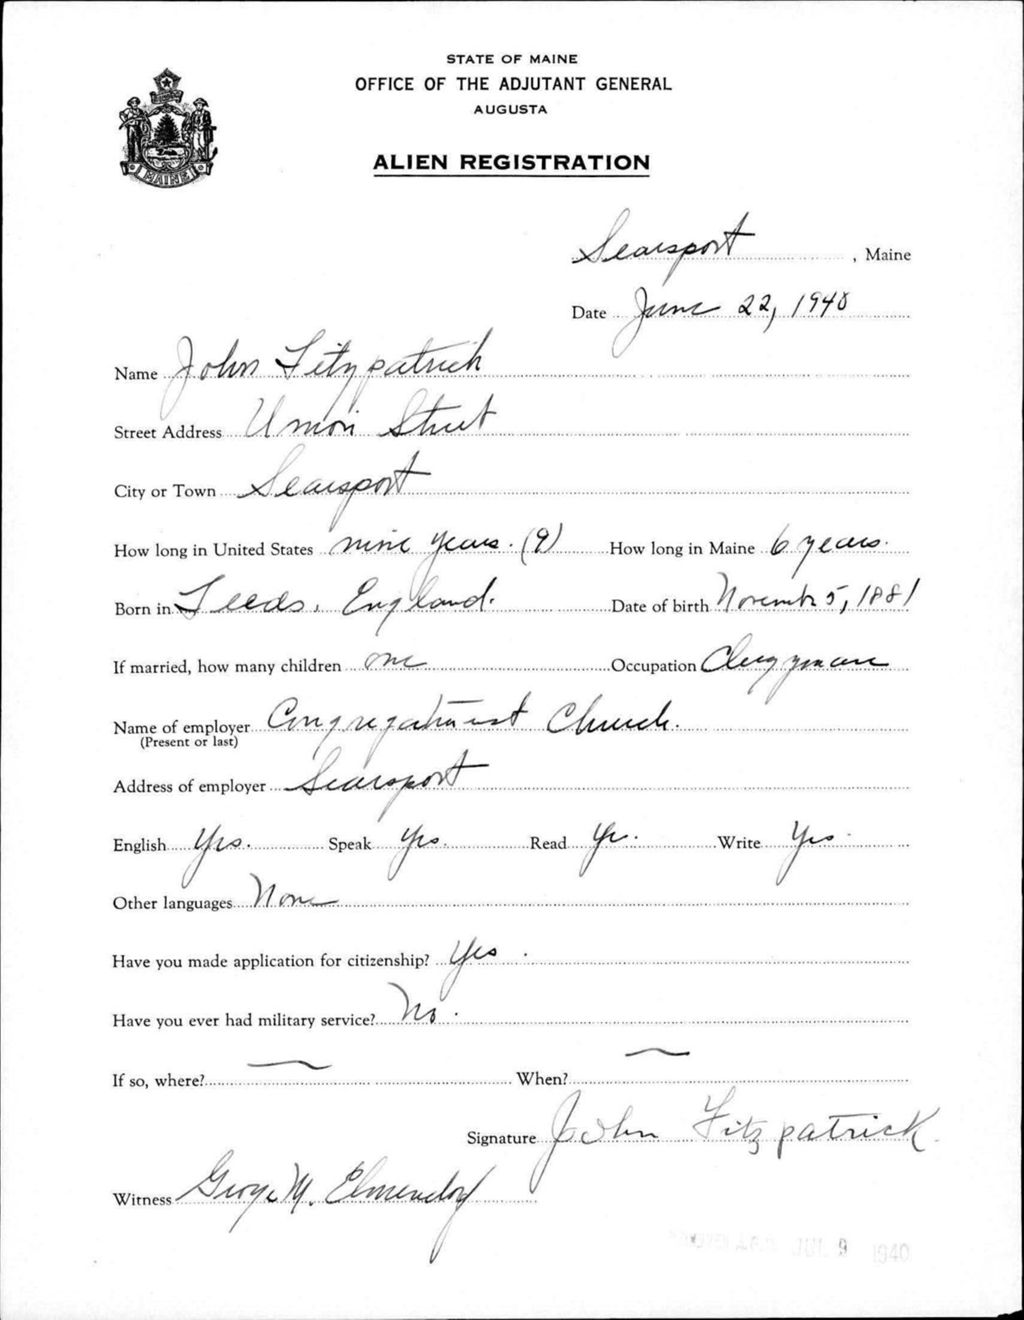 STATE OF MAINE
OFFICE OF THE ADJUTANT GENERAL
AUGUSTA
MAINE
ALIEN REGISTRATION
Searsport, Maine
Date June 22, 1940
Name John Fitzpatrick
Street Address Union Street
City or Town Searsport
How long in United States nine years. (9) How long in Maine 6 years.
Born in Leeds, England. Date of birth November 5, 1881
If married, how many children one Occupation Clergyman
Name of employer Congregational Church.
(Present or last)
Address of employer Searsport
English Yes. Speak Yes. Read Yes. Write Yes.
Other languages None
Have you made application for citizenship? Yes.
Have you ever had military service? No.
If so, where? — When? —
Signature John Fitzpatrick.
Witness George M. Elmendorf
JUL 9 1940